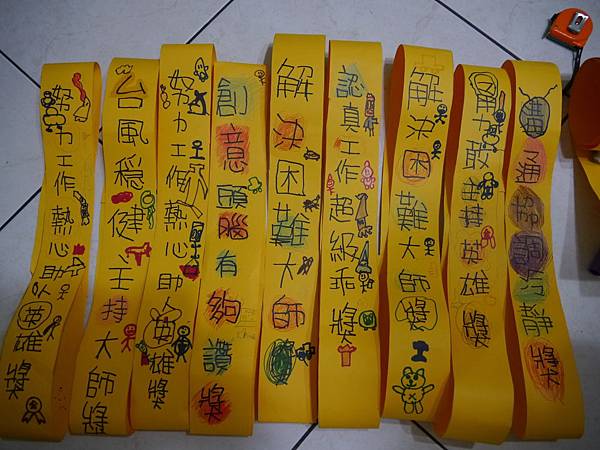 努力工作熱心助人英雄獎
台風穩健主持大師獎
努力工作熱心助人英雄獎
創意頭腦有夠讚獎
解決困難大師獎
認真工作超級乖獎
解決困難大師獎
勇敢主持英雄獎
溝通協調冷靜獎